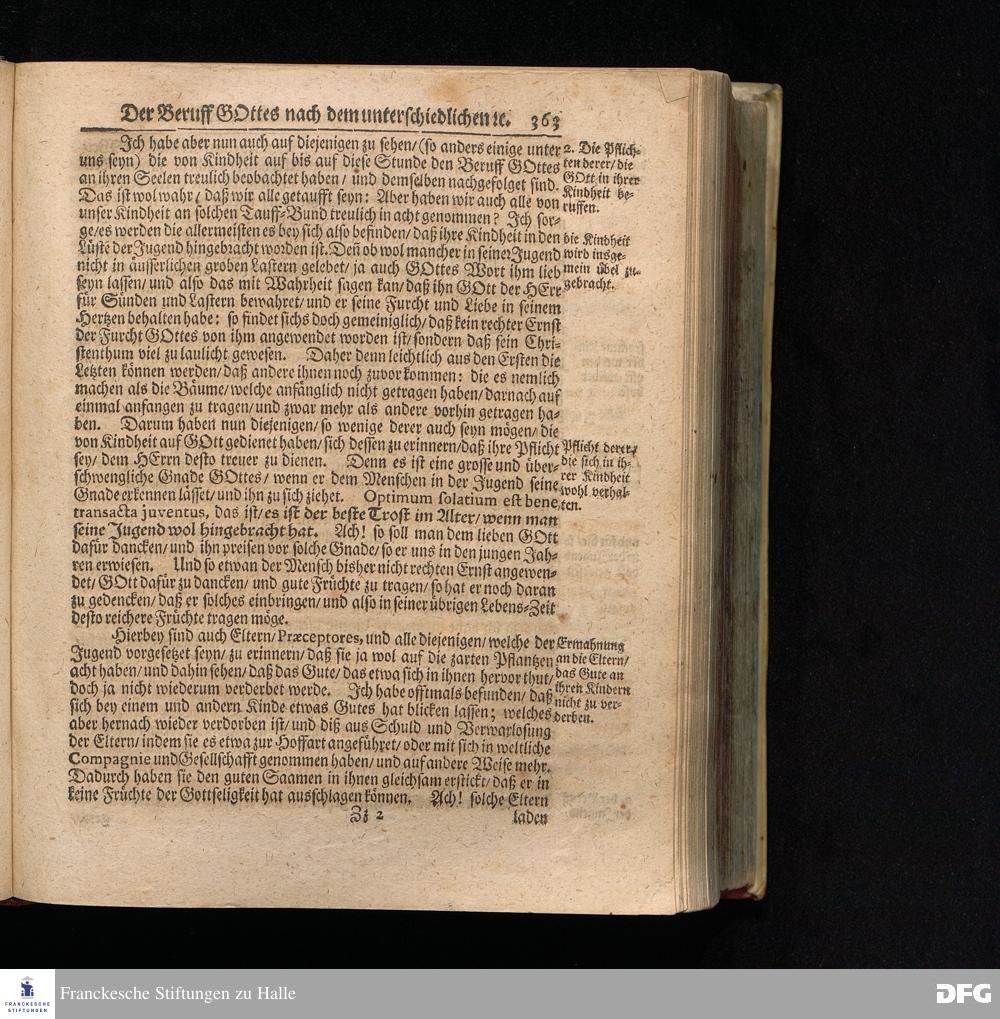 Der Beruff GOttes nach dem unterschiedlichen ꝛc. 363
Ich habe aber nun auch auf diejenigen zu sehen/ (so anders einige unter
uns seyn) die von Kindheit auf bis auf diese Stunde den Beruff GOttes
an ihren Seelen treulich beobachtet haben/ und demselben nachgefolget sind.
Das ist wol wahr/ daß wir alle getaufft seyn: Aber haben wir auch alle von
unser Kindheit an solchen Tauff-Bund treulich in acht genommen? Ich sor-
ge/ es werden die allermeisten es bey sich also befinden/ daß ihre Kindheit in den
Lüste der Jugend hingebracht worden ist. Deñ ob wol mancher in seiner Jugend
nicht in äusserlichen groben Lastern gelebet/ ja auch GOttes Wort ihm lieb
seyn lassen/ und also das mit Wahrheit sagen kan/ daß ihn GOtt der HErr
für Sünden und Lastern bewahret/ und er seine Furcht und Liebe in seinem
Hertzen behalten habe: so findet sichs doch gemeiniglich/ daß kein rechter Ernst
der Furcht GOttes von ihm angewendet worden ist/ sondern daß sein Chri-
stenthum viel zu laulicht gewesen. Daher denn leichtlich aus den Ersten die
Letzten können werden/ daß andere ihnen noch zuvor kommen: die es nemlich
machen als die Bäume/ welche anfänglich nicht getragen haben/ darnach auf
einmal anfangen zu tragen/ und zwar mehr als andere vorhin getragen ha-
ben. Darum haben nun diejenigen/ so wenige derer auch seyn mögen/ die
von Kindheit auf GOtt gedienet haben/ sich dessen zu erinnern/ daß ihre Pflicht
sey/ dem HErrn desto treuer zu dienen. Denn es ist eine grosse und über-
schwengliche Gnade GOttes/ wenn er dem Menschen in der Jugend seine
Gnade erkennen lässet/ und ihn zu sich ziehet. Optimum solatium est bene
transacta juventus, das ist/ es ist der beste Trost im Alter/ wenn man
seine Jugend wol hingebracht hat. Ach! so soll man dem lieben GOtt
dafür dancken/ und ihn preisen vor solche Gnade/ so er uns in den jungen Jah-
ren erwiesen. Und so etwan der Mensch bisher nicht rechten Ernst angewen-
det/ GOtt dafür zu dancken/ und gute Früchte zu tragen/ so hat er noch daran
zu gedencken/ daß er solches einbringen/ und also in seiner übrigen Lebens-Zeit
desto reichere Früchte tragen möge.
Hierbey sind auch Eltern/ Præceptores, und alle diejenigen/ welche der
Jugend vorgesetzet seyn/ zu erinnern/ daß sie ja wol auf die zarten Pflantzen
acht haben/ und dahin sehen/ daß das Gute/ das etwa sich in ihnen hervor thut/
doch ja nicht wiederum verderbet werde. Ich habe offtmals befunden/ daß
sich bey einem und andern Kinde etwas Gutes hat blicken lassen; welches
aber hernach wieder verdorben ist/ und diß aus Schuld und Verwarlosung
der Eltern/ indem sie es etwa zur Hoffart angeführet/ oder mit sich in weltliche
Compagnie und Gesellschafft genommen haben/ und auf andere Weise mehr.
Dadurch haben sie den guten Saamen in ihnen gleichsam erstickt/ daß er in
keine Früchte der Gottseligkeit hat ausschlagen können. Ach! solche Eltern
Zz 2 laden
2. Die Pflich-
ten derer/ die
GOtt in ihrer
Kindheit be-
ruffen.
die Kindheit
wird insge-
mein übel zu-
gebracht.
Pflicht derer/
die sich in ih-
rer Kindheit
wohl verhal-
ten.
Ermahnung
an die Eltern/
das Gute an
ihren Kindern
nicht zu ver-
derben.
FRANCKESCHE
STIFTUNGEN
Franckesche Stiftungen zu Halle
DFG